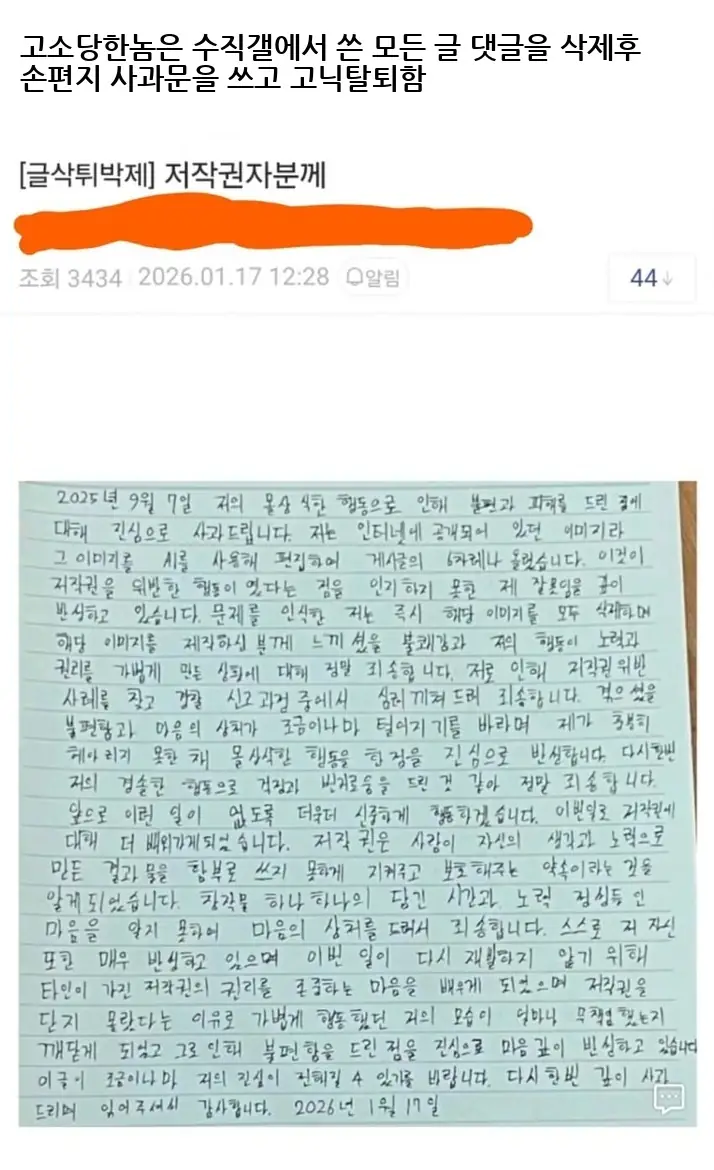 고소당한놈은 수직갤에서 쓴 모든 글 댓글을 삭제후
손편지 사과문을 쓰고 고닉탈퇴함
[글삭튀박제] 저작권자분께
조회 3434 2026.01.17 12:28 알림
44
2025년 9월 7일 저의 몰상식한 행동으로 인해 불편과 피해를 드린 점에
대해 진심으로 사과드립니다. 저는 인터넷에 공개되어 있던 이미지라
그 이미지를 AI를 사용해 편집하여 게시글의 6차례나 올렸습니다. 이것이
저작권을 위반한 행동이였다는 점을 인지하지 못한 제 잘못임을 깊이
반성하고 있습니다. 문제를 인식한 저는 즉시 해당 이미지를 모두 삭제하며
해당 이미지를 제작하신 분께 느끼셨을 불쾌감과 저의 행동이 노력과
권리를 가볍게 만든 상황에 대해 정말 죄송합니다. 저로 인해 저작권위반
사례를 찾고 경찰 신고 과정 중에서 심려 끼쳐드려 죄송합니다. 겪으셨을
불편함과 마음의 상처가 조금이나마 덜어지기를 바라며 제가 충분히
헤아리기 못한 채 몰상식한 행동을 한 점을 진심으로 반성합니다. 다시한번
저의 경솔한 행동으로 걱정과 번거로움을 드린 것 같아 정말 죄송합니다.
앞으로 이런 일이 없도록 더욱더 신중하게 행동하겠습니다. 이번일로 저작권에
대해 더 배워가게되었습니다. 저작권은 사람이 자신의 생각과 노력으로
만든 결과물을 함부로 쓰지 못하게 지켜주고 보호해주는 약속이라는 것을
알게되었습니다. 창작물 하나하나의 담긴 시간과 노력 정성들인
마음을 알지 못하여 마음의 상처를 드려서 죄송합니다. 스스로 저 자신
또한 매우 반성하고 있으며 이번 일이 다시 재발하지 않기 위해
타인이 가진 저작권의 권리를 존중하는 마음을 배우게 되었으며 저작권을
단지 몰랐다는 이유로 가볍게 행동했던 저의 모습이 얼마나 무책임했는지
깨닫게 되었고 그로 인해 불편함을 드린 점을 진심으로 마음 깊이 반성하고 있습니다
이글이 조금이나마 저의 진심이 전해질 수 있기를 바랍니다. 다시한번 깊이 사과
드리며 읽어주셔서 감사합니다. 2026년 1월 17일